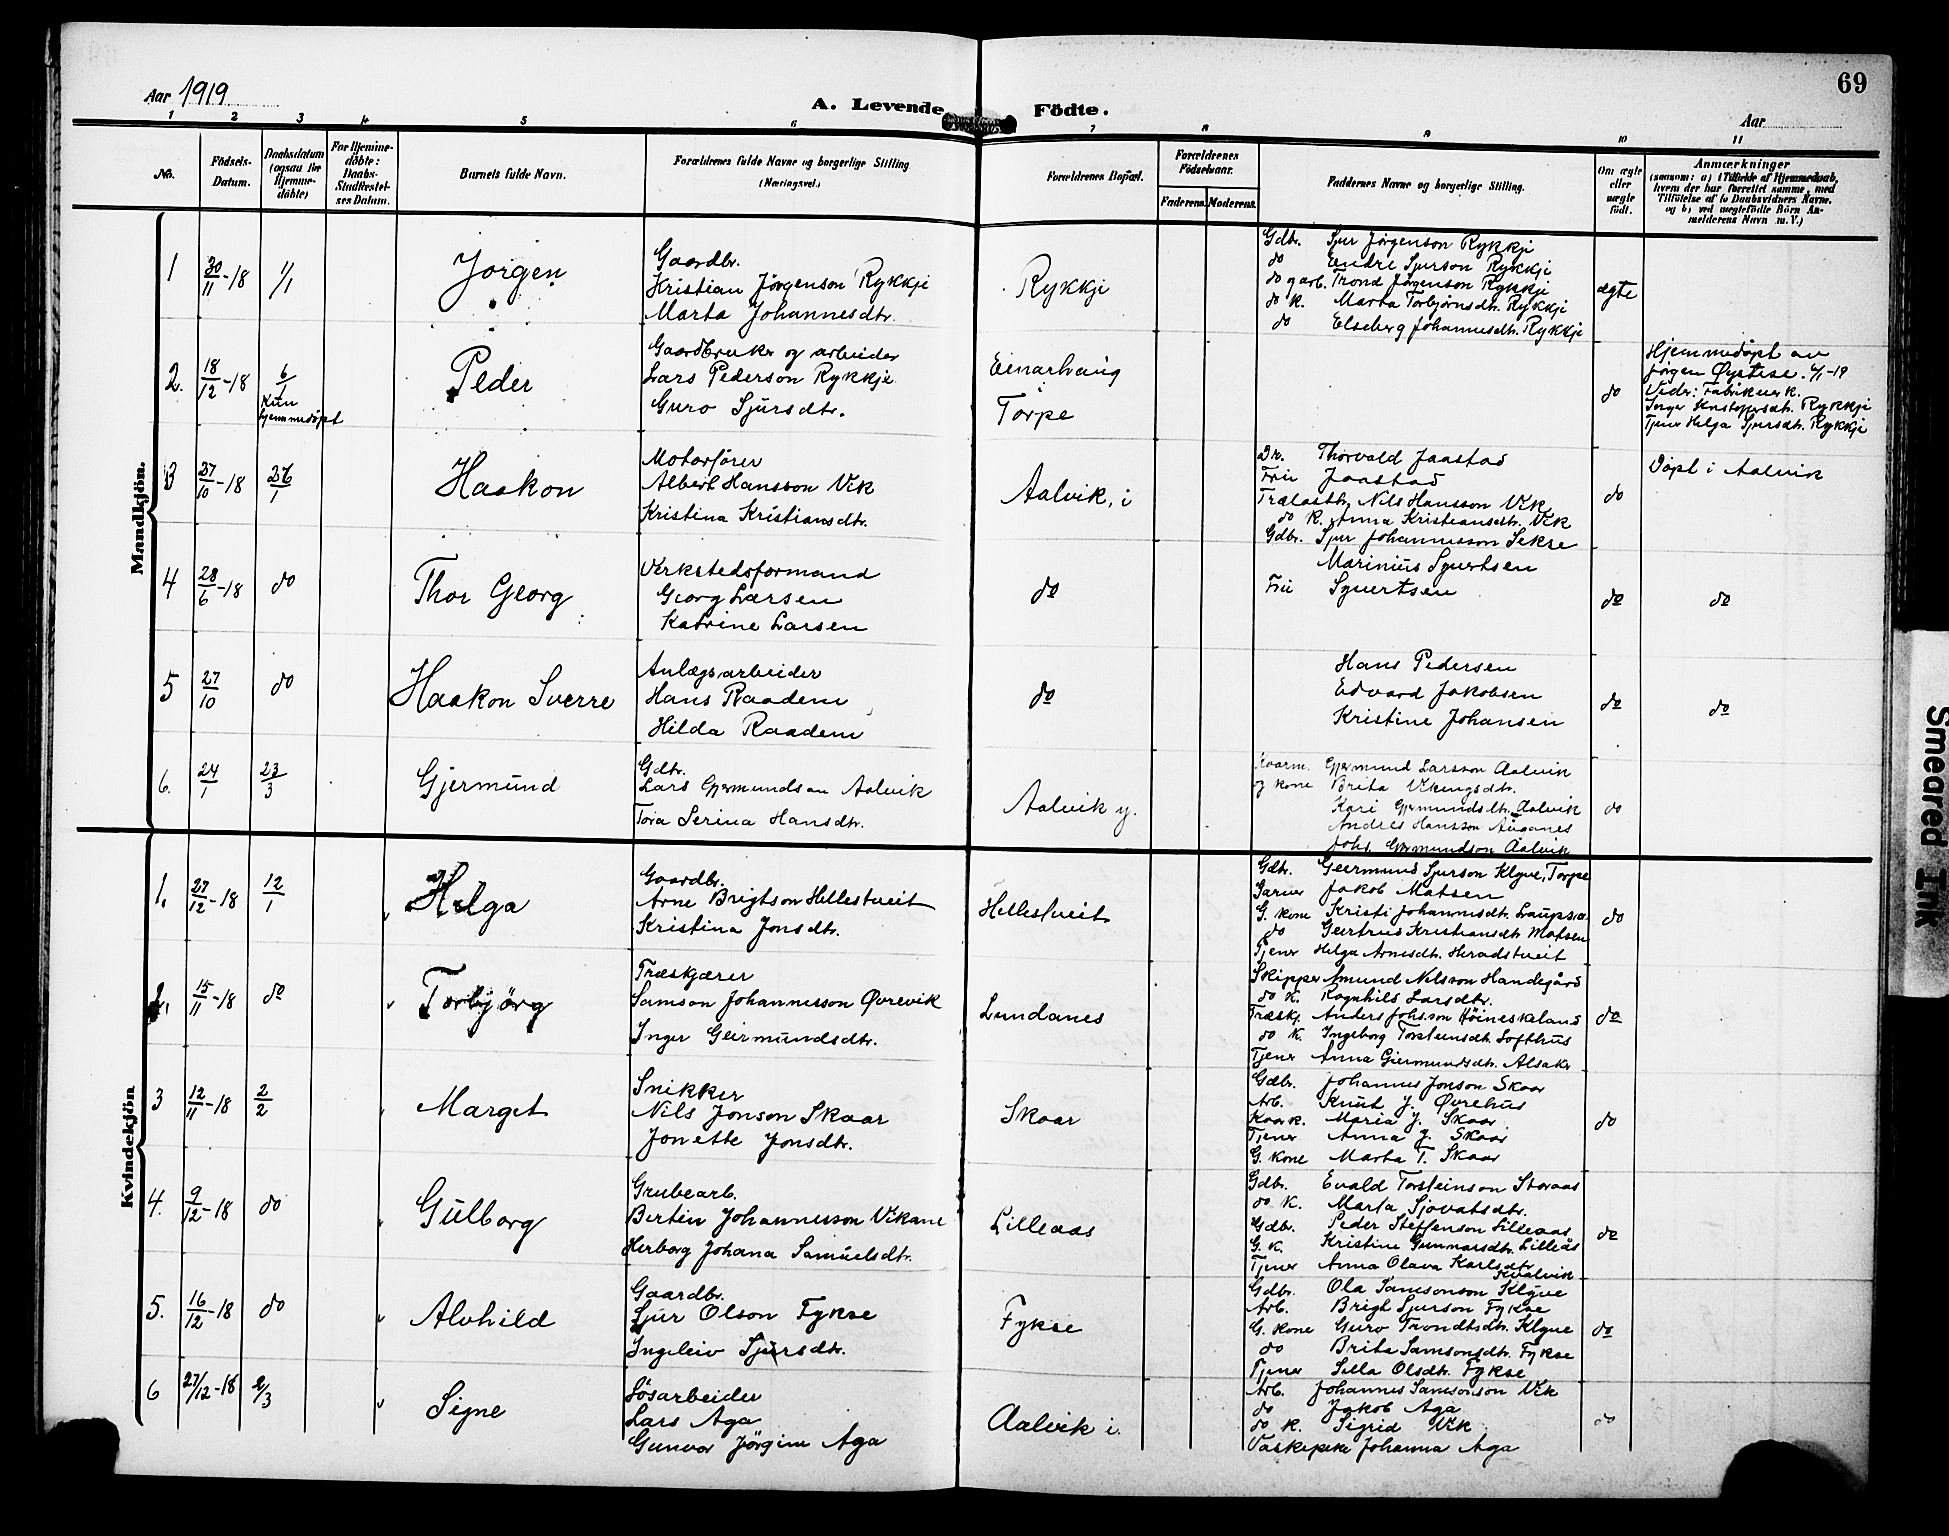 69
Aar 1919
A. Levende Födte.
Aar
1 2 3 4 5 6 7 8 9 10 11
No.
Födsels-Datum.
Daabsdatum (ogsaa for Hjemme-döbte)
For Hjemme-döbte: Daabs-Stadfæstel-ses Datum.
Barnets fulde Navn.
Forældrenes fulde Navne og borgerlige Stilling (Næringsvei.)
Forældrenes Bopæl.
Forældrenes Födselsaar.
Faderens. Moderens.
Faddernes Navne og borgerlige Stilling.
Om ægte eller uægte födt.
Anmærkninger
(saasom: a) i Tilfælde af Hjemmedaab, hvem der har forrettet samme, med Tilföielse af to Daabsvidners Navne. og b) ved uægtefödte Börn An-melderens Navn m. V.)
Mandkjön.
1 30/11-18 1/1 Jorgen
Gaardbr.
Kristian Jørgenson Rykkje
Marta Johannesdtr.
Rykkje
Gdbr. Sjur Jørgenson Rykkje
do Endre Sjurson Rykkje
do g arb. Trond Jørgenson Rykkje
do K. Marta Torbjørnsdtr. Rykkje
do Elseberg Johannesdtr. Rykkje
ægte
2. 18/12-18 6/1 Kun hjemmedøpt Peder
Gaardbruker og arbeider
Lars Pederson Rykkje
Guro Sjursdtr.
Einarhaug i Torpe
do
Hjemmedøpt av
Jørgen Øystese. 6/1-19
Vidr: Fabrikverk.
Rykkje
Tjener Helga Sjursdtr. Rykkje
3 27/10-18 26/1 Haakon
Motorfører
Albert Hansson Vik
Kristina Kristiansdtr.
Aalvik, i
Dr. Thorvald Jaastad
Fru Jaastad
Trælasth. Nils Hansson Vik
do K. Anna Kristiansdtr. Vik
Gdbr. Sjur Johannesson Sekse
do
Døpt i Aalvik
4 28/6-18 do Thor Georg
Verkstedsformand
Georg Larsen
Katrine Larsen
do
Marinius Syvertsen
Fru Syvertsen
do
do
5 27/10 do Haakon Sverre
Anlægsarbeider
Hans Raadem
Hilda Raadem
do
Hans Pedersen
Edvard Jakobsen
Kristine Johansen
do
do
6. 24/1 23/3 Gjermund
Gdbr.
Lars Gjermundson Aalvik
Tora Serina Hansdtr.
Aalvik y.
Kaarm. Gjermund Larsson Aalvik
og kone Brita Vikingsdtr.
Kari Gjermundsdtr. Aalvik
Andres Hansson Auganes
Johs. Gjermundson Aalvik
do
Kvindekjön
1. 27/12-18 12/1 Helga
Gaardbr.
Arne Brigtson Hellestveit
Kristina Jonsdtr.
Hellestveit
Gdbr. Geirmund Sjurson Klyve, Torpe
Garver Jakob Matsen
G. kone Kristi Johannesdtr. Laupsa
do Geirtrud Kristiansdtr. Matsen
Tjener Helga Arnesdtr. Heradstveit
do
2. 15/11-18 do Torbjörg
Træskjærer
Samson Johannesson Øvrevik
Inger Geirmundsdtr.
Lundanes
Skipper Amund Nilsson Handegård
do K. Ragnhild Larsdtr.
Træskj. Anders Johs.son
do K. Ingeborg Torsteinsdtr. Lofthus
Tjener Anna Gjermundsdtr. Alsaker
do
3 12/11-18 2/2 Marget
Snikker
Nils Jonson Skaar
Jonette Jonsdtr.
Skaar
Gdbr. Johannes Jonson Skaar
Arb. Knut J. Øvrehus
Kaark. Maria J. Skaar
Tjener Anna J. Skaar
G. kone Marta T. Skaar
do
4. 9/12-18 do Gulborg
Grubearb.
Bertin Johannesson Vikane
Herborg Johana Samuelsdtr.
Lilleaas
Gdbr. Evald Torsteinson Storaas
do K. Marta Sjovatsdtr.
Gdbr. Peder Steffenson Lilleaas
G. K. Kristine Gunnarsdtr. Lilleås
Tjener Anna Olava Karlsdtr. Kvalvik
do
5. 16/12-18 do Alvhild
Gaardbr.
Sjur Olson Fykse
Ingleiv Sjursdtr.
Fykse
Gdbr. Ola Samsonson Klyve
Arb. Brigt Sjurson Fykse
G. kone Guro Trondsdtr. Klyve
do Brita Samsonsdtr. Fykse
Tjener Silla Olsdtr. Fykse
do
6 27/12-18 2/3 Signe
Lösarbeider
Lars Aga
Gunvor Jörgine Aga
Aalvik i.
Arb. Johannes Samsonson Vik
do Jakob Aga
do K. Sigrid Vik
Vaskepike Johanna Aga
do
Smeared Ink